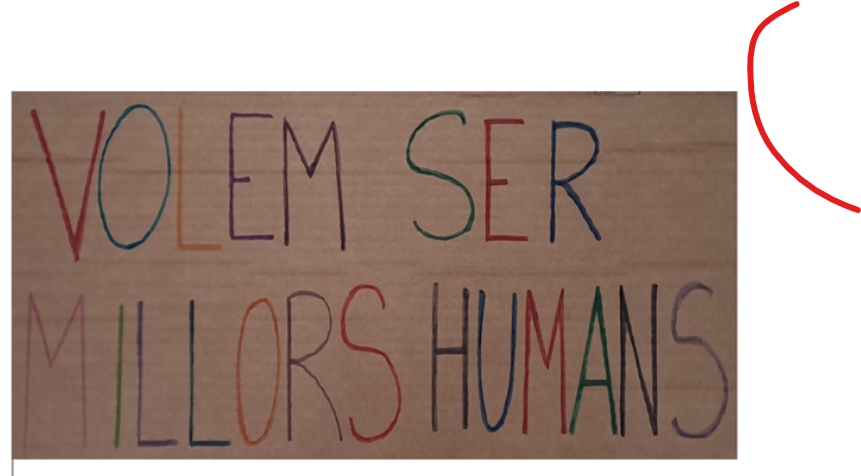 VOLEM SER
MILLORS HUMANS